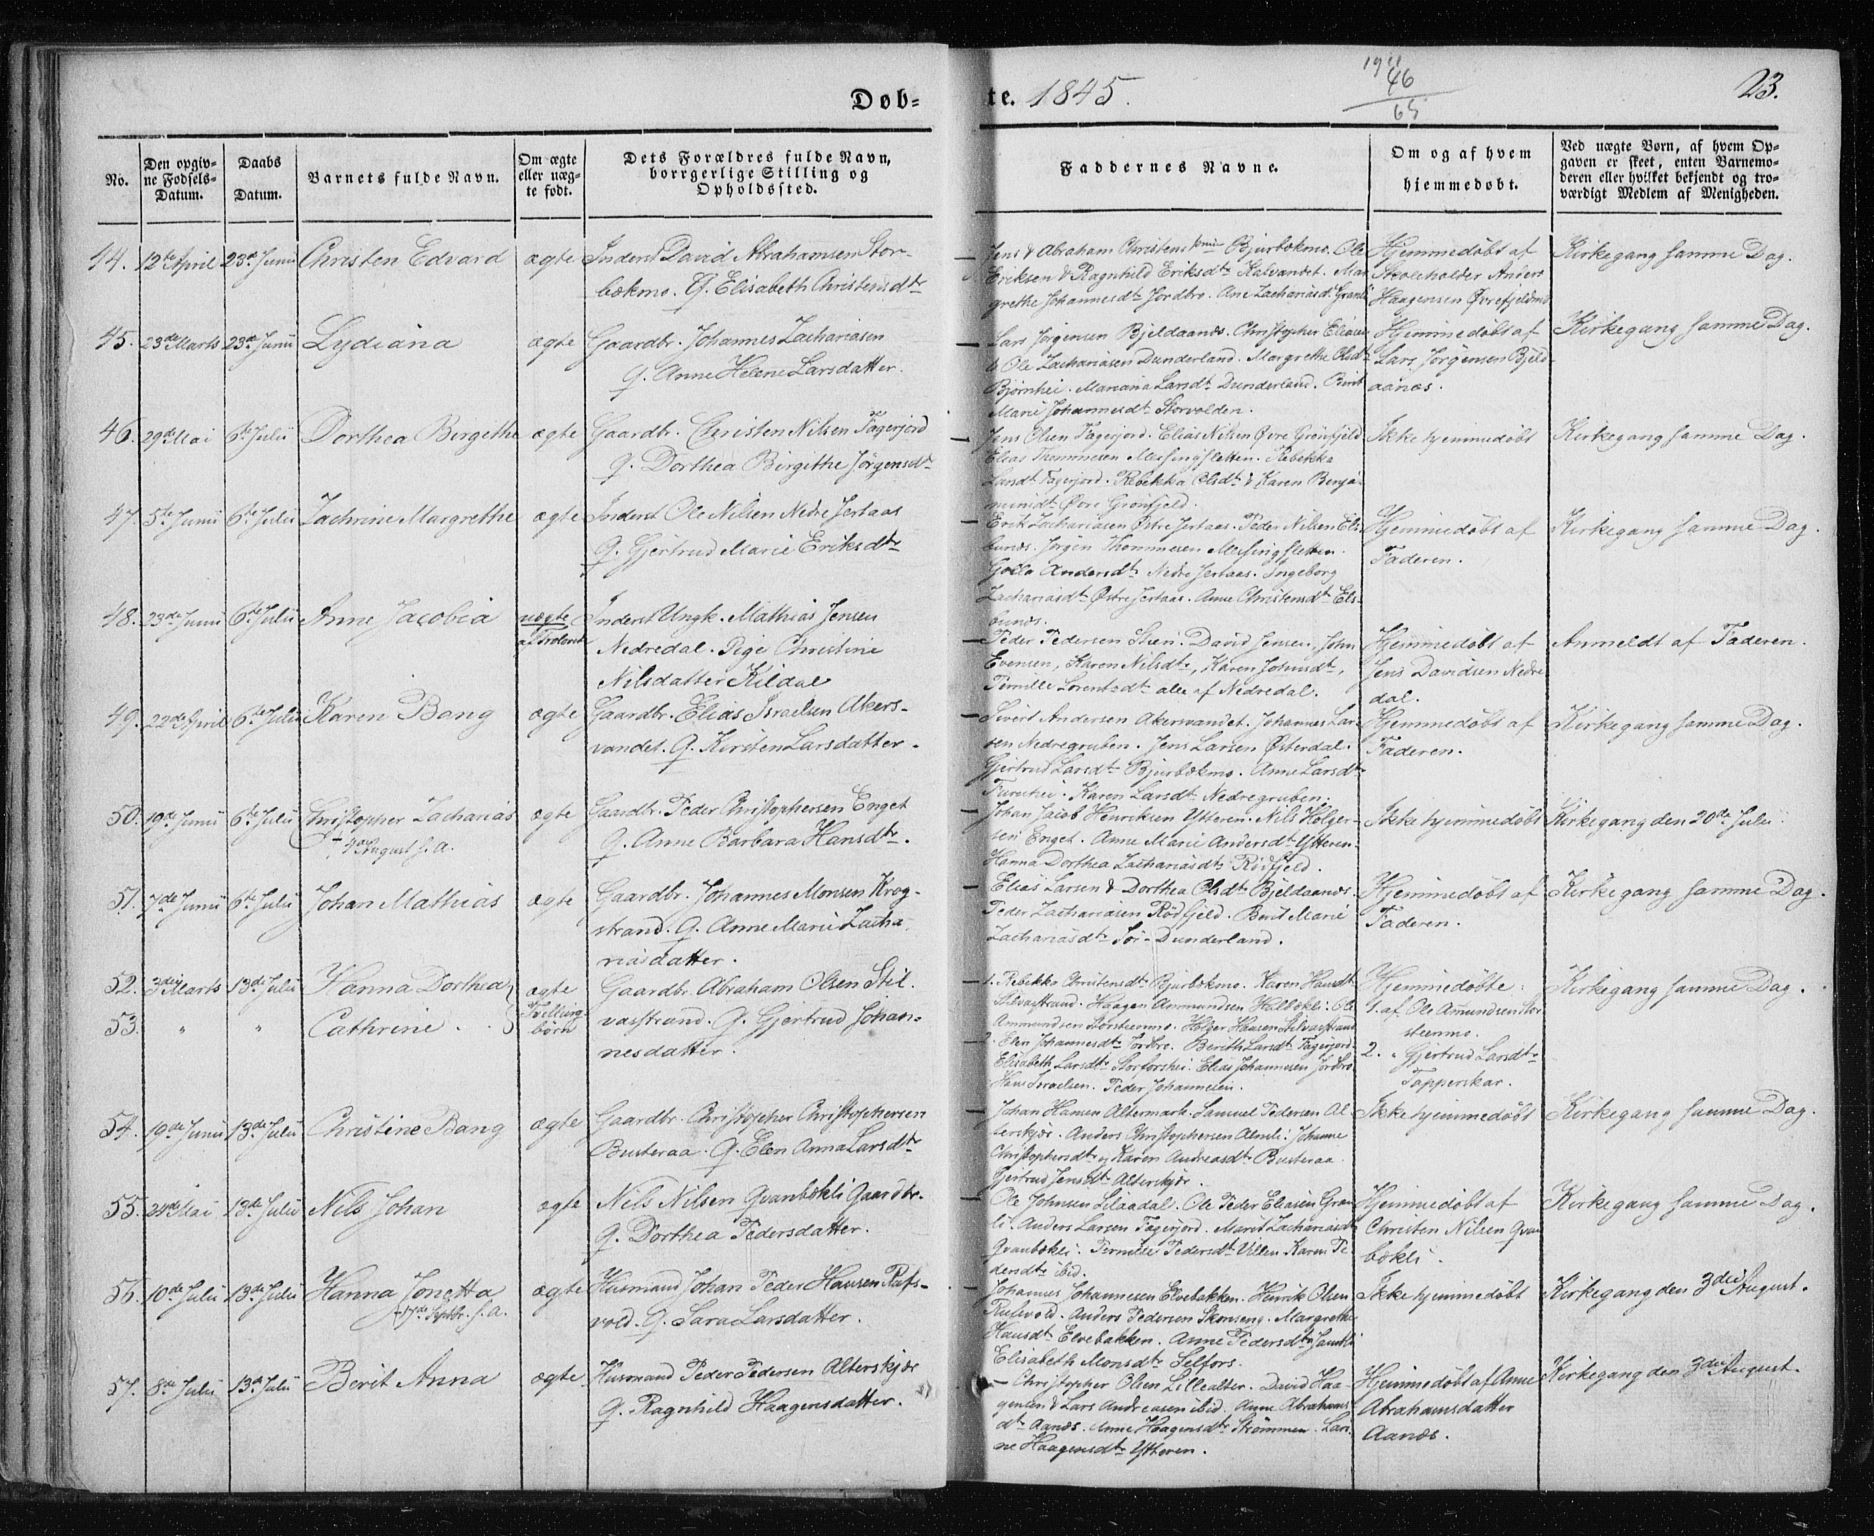 Døb-
te. 1845.
1911
46
65
23.
No.
Den opgiv-
ne Fødsels-
Datum.
Daabs
Datum.
Barnets fulde Navn.
Om ægte
eller uæg-
te født.
Dets Forældres fulde Navn,
borrgerlige Stilling og
Opholdssted.
Faddernes Navne.
Om og af hvem
hjemmedøbt.
Ved uægte Børn, af hvem Op-
gaven er skeet, enten Barnemo-
deren eller hvilket bekjendt og tro-
værdigt Medlem af Menigheden.
44. 12te April 23de Junii Christen Edvard ægte Inderst David Abrahamsen Stor-
bækmo. Q. Elisabeth Christensdtr
Jens & Abraham Christens Bjurbækmo. Ole
Eriksen & Ragnhild Eriksdtr Kalvandet. Mar
grethe Johannesdtr Jordbro. Ane Zachariasdtr Granli
Hjemmedøbt af
Skoleholder Anders
Haagensen Øvrefjeldmo
Kirkegang samme Dag.
45. 23de Marts 23de Junii Lydiana ægte Gaardbr. Johannes Zachariasen
Q. Anne Helene Larsdatter.
Lars Jørgensen Bjeldaanæs. Christopher Eliasen
& Ole Zachariasen Dunderland. Margrethe Olsdtr
Bjørnhei. Mariana Larsdtr Dunderland. Berit
Marie Johannesdtr Storvolden.
Hjemmedøbt af
Lars Jørgensen Bjeld-
aanæs.
Kirkegang samme Dag.
46. 29de Mai 6te Julii Dorthea Birgethe ægte Gaardbr. Christen Nilsen Fagerjord
Q. Dorthea Birgithe Jørgensdtr
Jens Olsen Fagerjord. Elias Nilsen Øvre Grønfjeld
Elias Thommesen Messingsletten. Rebekka
Larsdtr Fagerjord. Rebekka Olsdtr & Karen Benja-
minsdtr Øvre Grønfjeld.
Ikke hjemmedøbt
Kirkegang samme Dag.
47. 5te Junii 6te Julii Zachrine Margrethe ægte Inderst Ole Nilsen Nedre Jertaas
Q. Gjertrud Marie Eriksdtr
Erik Zachariasen Østre Jertaas. Peder Nilsen Els-
bunæs. Jørgen Thommesen Messingsletten.
Andersdtr Nedre Jertaas. Ingeborg
Zachariasdtr Østre Jertaas. Anne Christensdtr Els-
bunæs.
Hjemmedøbt af
Faderen.
Kirkegang samme Dag.
48. 23de Junii 6te Julii Anne Jacobia uægte Inderst Ungk. Mathias Jensen
Nedredal. Pige Christine
Nilsdatter Kildal
Peder Pedersen Steen. David Jensen, John
Evensen, Karen Nilsdtr, Karen Johnsdtr,
Pernille Lorentsdtr alle af Nedredal.
Hjemmedøbt af
Jens Davidsen Nedre
dal.
Anmeldt af Faderen.
49. 22de April 6te Julii Karen Bang ægte Gaardbr. Elias Israelsen Akers-
vandet. Q. Kirsten Larsdatter.
Sivert Andersen Akersvandet. Johannes Lar-
sen Nedregruben. Jens Larsen Østerdal.
Gjertrud Larsdtr Bjurbækmo. Anne Larsdtr
Furuhei. Karen Larsdtr Nedregruben.
Hjemmedøbt af
Faderen.
Kirkegang samme Dag.
50. 19de Junii 6te Julii Christopher Zacharias ægte Gaardbr. Peder Christophersen Enget
August s. a.
Q. Anne Barbara Hansdtr.
Johan Jacob Henriksen Ytteren. Nils Holger-
sen Enget. Anne Marie Andersdtr Ytteren.
Hanna Dorthea Zachariasdtr Rødfjeld.
Ikke hjemmedøbt
Kirkegang den 20de Julii.
51. 7de Junii 6te Julii Johan Mathias ægte Gaardbr. Johannes Monsen Krog-
strand. Q. Anne Marie Zacha-
riasdatter.
Elias Larsen & Dorthea Olsdtr Bjeldaanæs.
Peder Zachariasen Rødfjeld. Berit Marie
Zachariasdtr Sør-Dunderland.
Hjemmedøbt af
Faderen.
Kirkegang samme Dag.
52. 3die Marts 13de Julii Hanna Dorthea ægte Gaardbr. Abraham Olsen Stil-
53. " " Cathrine Tvilling-
børn
vasstrand. Q. Gjertrud Johan-
nesdatter.
1. Rebekka Christensdtr Bjurbækmo. Karen Hansdtr
Stilvasstrand. Haagen Ammundsen Hælbækli. Ole
Ammundsen Storsteenmo. Holger Hansen Stilvasstrand
2. Elen Johannesdtr Jordbro. Berith Larsdtr Fagerjord.
Elisabeth Larsdtr Storforshei. Elias Johannesen Jordbro
Hans Israelsen. Peder Johannesen.
Hjemmedøbte
1. af Ole Amundsen Stor-
steenmo.
2. " Gjertrud Larsdtr
Tapperskar.
Kirkegang samme Dag.
54. 19de Junii 13de Julii Christine Bang ægte Gaardbr. Christopher Christophersen
Busteraa. Q. Elen Anna Larsdtr
Johan Hansen Altermark. Samuel Pedersen Al-
terskjær. Anders Christophersen Almli. Johanne
Christophersdtr & Karen Andreasdtr Busteraa.
Gjertrud Jensdtr Alterskjær.
Ikke hjemmedøbt
Kirkegang samme Dag.
55. 24de Mai 13de Julii Nils Johan ægte Nils Nilsen Qvanbækli Gaardbr.
Q. Dorthea Pedersdatter.
Ole Johnsen Lilaadal. Ole Peder Eliasen Gran-
li. Anders Larsen Fagerjord. Marit Zachariasdtr
Qvanbækli. Pernille Pedersdtr Ullen. Karen Pe-
dersdtr ibid.
Hjemmedøbt af
Christen Nilsen Qvan
bækli.
Kirkegang samme Dag.
56. 10de Julii 13de Julii Hanna Jonetta ægte Husmand Johan Peder Hansen Rufs-
17de Septbr. s. a.
vold. Q. Sara Larsdatter.
Johannes Johannesen Elvebakken. Henrik Olsen
Rufsvold. Anders Pedersen Skonseng. Margrethe
Hansdtr Elvebakken. Anne Pedersdtr
Elisabeth Monsdtr Selfors.
Ikke hjemmedøbt
Kirkegang den 3die August.
57. 8de Julii 13de Julii Berit Anna ægte Husmand Peder Pedersen Alterskjær
Q. Ragnhild Haagensdatter.
Christopher Olsen Lillealter. David Haa-
gensen & Lars Andreasen ibid. Anne Abrahams
dtr Aanæs. Anne Haagensdtr Strømmen. Lars-
ne Haagensdtr Ytteren.
Hjemmedøbt af Anne
Abrahamsdatter
Aanæs.
Kirkegang den 3die August.